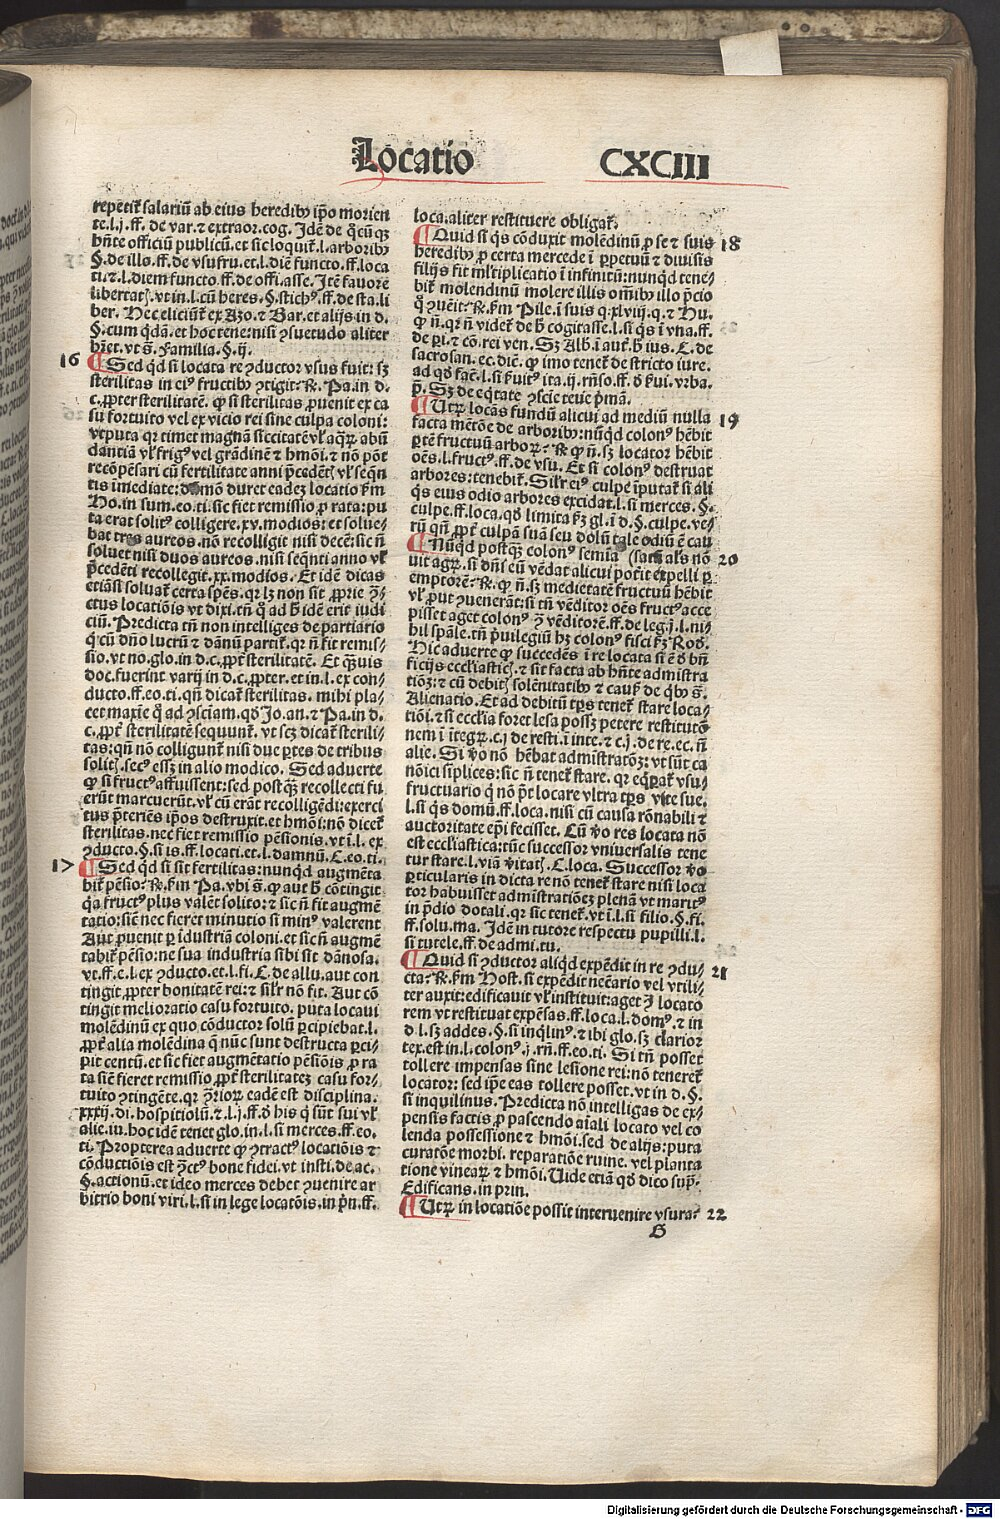 Locatio CXCIII
repetit᷑ salariū ab eius heredibꝰ ip̄o morien
te.l.j.ff. de var.⁊ extraor.cog. Idē de q̄cūqꝫ
hn̄te officiū publicū.et sic loquit᷑.l.arboribꝰ
§.de illo.ff.de vsufru.et.l.diē functo.ff.loca
ti.⁊.l.diem functo.ff.de offi.asse. Itē fauore
libertatꝭ.vt in.l.cū heres.§.stichꝰ.ff.de sta.li
ber. Hec eliciūt᷑ ex Azo.⁊ Bar.et alijs in d.
§.cum q̄dā.et hoc tene:nisi ꝯsuetudo aliter
hr̄et.vt s̄. Familia.§.ij.
16 ¶ Sed qd̓ si locata re ꝯductor vsus fuit: sꝫ
sterilitas in eiꝰ fructibꝰ ꝯtigit:℞. Pa.in d.
c.ꝓpter sterilitatē. ꝙ si sterilitas ꝓuenit ex ca
su fortuito vel ex vicio rei sine culpa coloni:
vtputa qꝛ timet magnā siccitatē vl̓ aq̄ꝝ abū
dantiā vl̓ frigꝰ vel grādinē ⁊ hmōi.⁊ nō pōt
recōpēsari cū fertilitate anni p̄cedētꝭ vl̓ seqn̄
tis īmediate: dūmō duret eadeꝫ locatio ẜm
Ho.in sum.eo.ti.sic fiet remissio ꝓ rata: pu
ta erat solitꝰ colligere.xv.modios: et solue-
bat tres aureos.nō recolligit nisi decē: sic n̄
soluet nisi duos aureos.nisi seqn̄ti anno vl̓
p̄cedēti recollegit.xx.modios. Et idē dicas
etiāsi soluat᷑ certa spēs.qꝛ lꝫ non sit ꝓprie ꝯ̄-
ctus locatiōis vt dixi.tn̄ q̄ ad h̓ idē erit iudi
ciū. Predicta tn̄ non intelliges de partiario
q̄ cū dn̄o lucrū ⁊ dānū partit᷑.qꝛ n̄ fit remis-
sio.vt no.glo.in d.c.ꝓpt̓ sterilitatē. Et q̄ꝫuis
doc.fuerint varij in d.c.ꝓpter.et in.l.ex con-
ducto.ff.eo.ti.qn̄ dicat᷑ sterilitas. mihi pla-
cet maxīe q̄ ad ꝯsciam.qd̓ Jo.an.⁊ Pa.in d.
c.ꝓpt̓ sterilitatē sequunt᷑. vt scꝫ dicat᷑ sterili-
tas: qn̄ nō colligunt᷑ nisi due ꝑtes de tribus
solitꝭ.secꝰ essꝫ in alio modico. Sed aduerte
ꝙ si fructꝰ affuissent: sed postq̄ꝫ recollecti fu
erūt marcuerūt.vl̓ cū erāt recolligēdi: exerci
tus p̄teriēs ip̄os destruxit.et hmōi: nō dicet᷑
sterilitas.nec fiet remissio pēsionis.vt ī.l. ex
ꝯducto.§.si is.ff.locati.et.l.damnū.C.eo.ti.
17 ¶ Sed qd̓ si sit fertilitas: nunqd̓ augmēta
bit᷑ pēsio:℞.ẜm Pa.vbi s̄.ꝙ aut h̓ cōtingit
q̄a fructꝰ plus valēt solito: ⁊ sic n̄ fit augmē
tatio: siē nec fieret minutio si minꝰ valerent
Aut ꝓuenit ꝑ īdustriā coloni.et sic n̄ augmē
tabit᷑ pēsio: ne sua industria sibi sit dānosa.
vt.ff.e.l.ex ꝯducto.et.l.fi.C.de allu.aut con
tingit ꝓpter bonitatē rei: ⁊ sil̓r nō fit. Aut cō
tingit melioratio casu fortuito. puta locaui
molēdinū ex quo cōductor solū ꝑcipiebat.l.
ꝓpt̓ alia molēdina q̄ nūc sunt destructa ꝑci-
pit centū.et sic fiet augmētatio pēsiōis ꝓ ra
ta siē fieret remissio ꝓpt̓ sterilitateꝫ casu for-
tuito ꝯtingēte. qꝛ ꝯ̄rioꝝ eadē est disciplina.
xxxij.di.hospitiolū.⁊.l.j.ff.d̓ his q̄ sūt sui vl̓
alie.iu.hoc idē tenet glo.in.l.si merces.ff.eo.
ti. Propterea aduerte ꝙ ꝯtractꝰ locatiōis ⁊
cōductiōis est ꝯ̄ctꝰ bone fidei.vt insti.de ac.
§.actionū.et ideo merces debet ꝯuenire ar
bitrio boni viri.l.si in lege locatōis.in pn̄.ff.
loca.aliter restituere obligat᷑.
¶ Quid si q̄s cōduxit molēdinū ꝓ se ⁊ suis 18
heredibꝰ ꝓ certa mercede ī ꝑpetuū ⁊ diuisis
filijs fit ml̓tiplicatio ī infinitū: nunqd̓ tene-
bit᷑ molendinū molere illis oībꝰ illo p̄cio
q̄ ꝯuēit:℞.ẜm Pile.ī suis q.xlviij.q.⁊ Hu.
ꝙ n̄.qꝛ n̄ videt᷑ de h̓ cogitasse.l.si q̄s ī vna.ff.
de ꝑi.⁊ cō.rei ven. Sꝫ Alb.ī aut̓.h̓ ius.C.de
sacrosan.ec.dic̄.ꝙ imo tenet᷑ de stricto iure.
ad qd̓ fac̄.l.si ẜuitꝰ ita.ij.rn̄so.ff.d̓ ẜui.vrba.
p̄. Sꝫ de eq̄tate ꝯsc̄ie teue p̄mā.
¶ Utꝝ locās fundū alicui ad mediū nulla 19
facta mētōe de arboribꝰ: nūqd̓ colonꝰ hēbit
ꝑtē fructuū arboꝝ:℞ ꝙ n̄.sꝫ locator hēbit
oēs.l.fructꝰ.ff.de vsu. Et si colonꝰ destruat
arbores: tenebit᷑. Sil̓r eiꝰ culpe īputat᷑ si ali
q̄s eius odio arbores excidat.l.si merces.§.
culpe.ff.loca.qd̓ limita ẜꝫ gl.ī d.§.culpe.ve-
rū qn̄ ꝓpt̓ culpā suā seu dolū tale odiū ē cau
¶ Nūqd̓ postq̄ꝫ colonꝰ semīa (satā al̓s nō 20
uit agꝝ.si dn̄s eū vēdat alicui poter̄it expelli ꝑ
emptorē:℞.ꝙ n̄.sꝫ medietatē fructuū hēbit
vl̓ put ꝯuenerāt: si tn̄ vēditor oēs fructꝰ acce
pisset aget colonꝰ ꝯ̄ vēditorē.ff.de leg.j.l.ni-
hil.spāle.tn̄ p̄uilegiū hꝫ colonꝰ fisci ẜꝫ Rod.
Hic aduerte ꝙ succedēs ī re locata si ē d̓ bn̄
ficijs eccl̓iasticꝭ.⁊ sit facta ab hn̄te admistra
tiōꝫ: ⁊ cū debitꝭ solēnitatibꝰ ⁊ causꝭ de q̄bꝰ s̄.
Alienatio. Et ad debitū tp̄s tenet᷑ stare loca-
tiōi.⁊ si eccl̓ia foret lesa possꝫ petere restitutō
nem ī ītegꝝ.c.j de resti.ī inte.⁊ c.j.de re.ec.n̄
alie. Si v̓o nō hēbat admistratōꝫ: vt sūt ca
nōici sīplices: sic n̄ tenet᷑ stare. qꝛ eq̄ꝑat᷑ vsu-
fructuario q̄ nō pōt locare vltra tp̄s vite sue.
l.si q̄s domū.ff.loca.nisi cū causa rōnabili ⁊
auctoritate ep̄i fecisset. Cū v̓o res locata nō
est eccl̓iastica: tūc successor vniuersalis tene
tur stare.l.viā v̓itatꝭ.C.loca. Successor v̓o
ꝑticularis in dicta re nō tenet᷑ stare nisi loca
tor habuisset admistratiōeꝫ plenā vt maritꝰ
in p̄dio dotali.qꝛ sic tenet᷑.vt ī.l.si filio.§.fi.
ff.solu.ma. Idē in tutore respectu pupilli.l.
si tutele.ff.de admi.tu.
¶ Quid si ꝯductor aliqd̓ expēdit in re ꝯdu- 21
cta:℞.ẜm Host.si expēdit nec̄ario vel vtili-
ter auxit: edificauit vl̓ instituit: aget ꝯ̄ locato
rem vt restituat expēsas.ff.loca.l.domꝰ.⁊ in
d.l.sꝫ addes.§.si inq̄linꝰ.⁊ ibi glo.sꝫ clarior
tex.est in.l.colonꝰ.j.rn̄.ff.eo.ti. Si tn̄ posset
tollere impensas sine lesione rei: nō teneret᷑
locator: sed ip̄e eas tollere posset.vt in d.§.
si inquilinus. Predicta nō intelligas de ex-
pensis factis ꝓ pascendo aīali locato vel co
lenda possessione ⁊ hmōi.sed de alijs: puta
curatōe morbi. reparatiōe ruine. vel planta
tione vineaꝝ ⁊ hmōi. Uide etiā qd̓ dico sup̄.
Edificans.in prin.
¶ Utꝝ in locatiōe possit interuenire vsura: 22
G
Digitalisierung gefördert durch die Deutsche Forschungsgemeinschaft - DFG